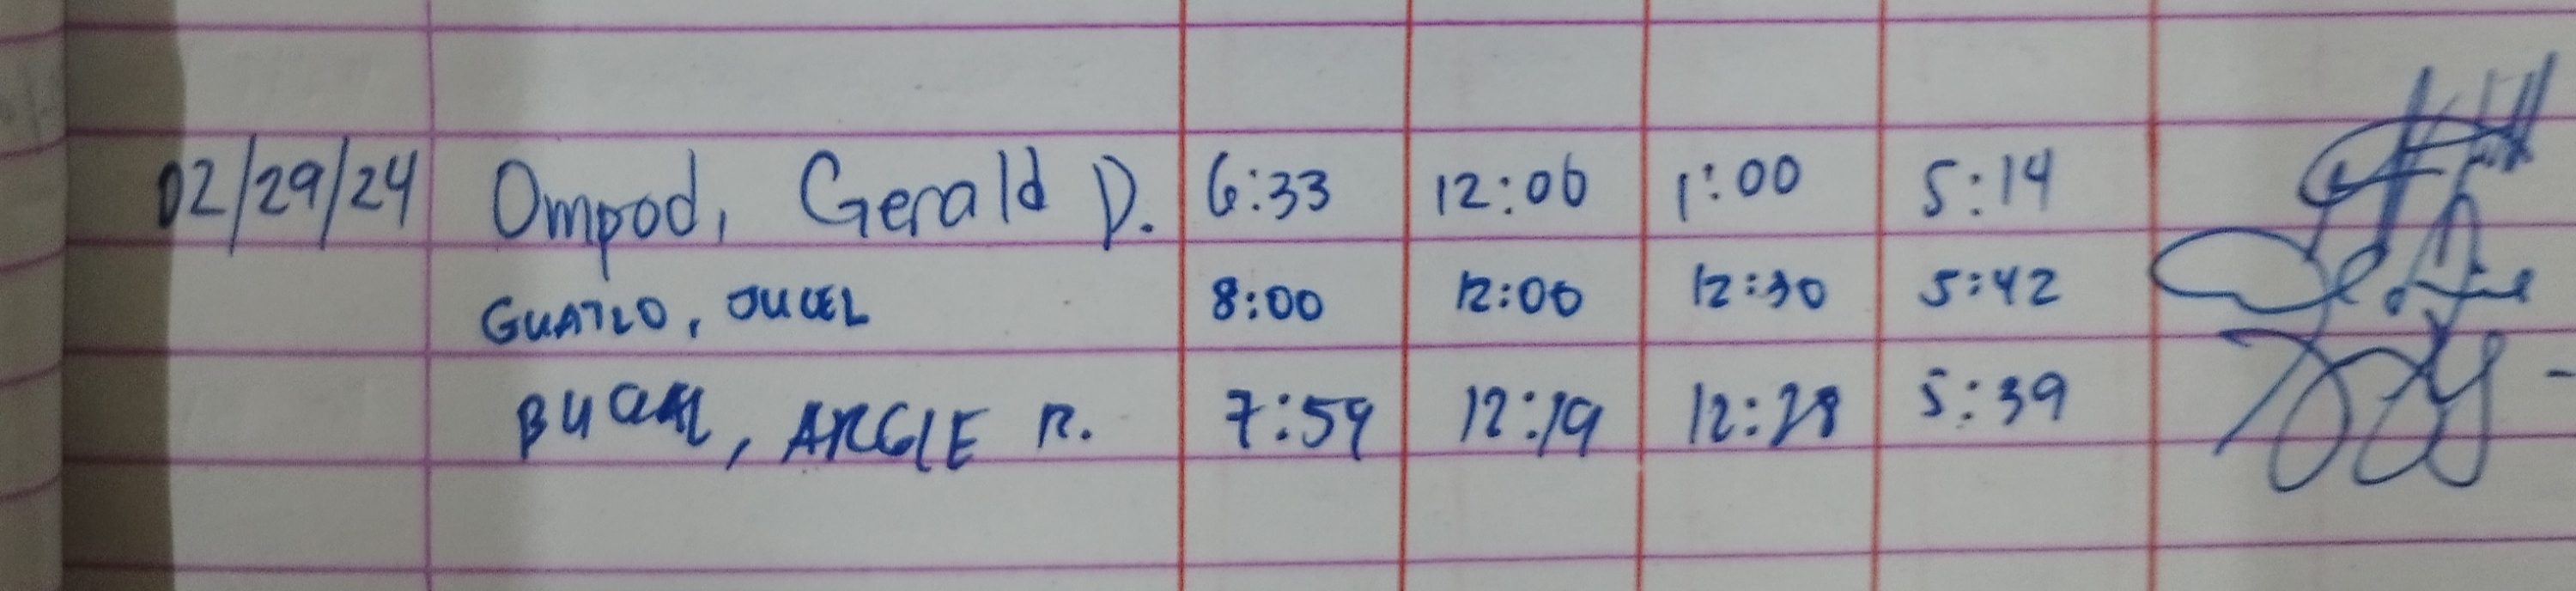 02/29/24 Ompod, Gerald D. 6:33 12:06 1:00 5:14
GUATLO, JUCEL 8:00 12:00 12:30 5:42
BUCAL, ARGIE R. 7:59 12:19 12:28 5:39